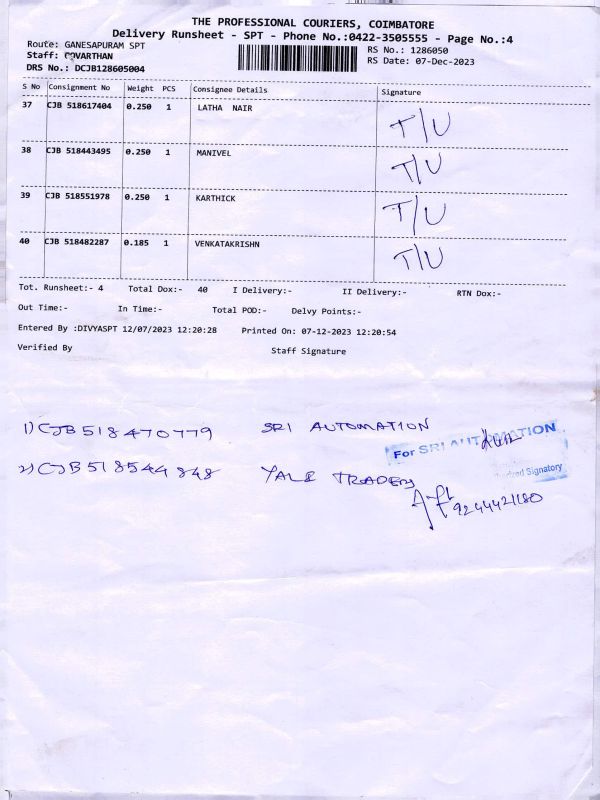 THE PROFESSIONAL COURIERS, COIMBATORE
Delivery Runsheet - SPT - Phone No.:0422-3505555 - Page No.:4
Route: GANESAPURAM SPT
RS No.: 1286050
Staff: GOVARTHAN
RS Date: 07-Dec-2023
DRS No.: DCJB128605004
S No Consignment No Weight PCS Consignee Details Signature
37 CJB 518617404 0.250 1 LATHA NAIR T/U
38 CJB 518443495 0.250 1 MANIVEL T/U
39 CJB 518551978 0.250 1 KARTHICK T/U
40 CJB 518482287 0.185 1 VENKATAKRISHN T/U
Tot. Runsheet:- 4 Total Dox:- 40 I Delivery:- II Delivery:- RTN Dox:-
Out Time:- In Time:- Total POD:- Delvy Points:-
Entered By :DIVYASPT 12/07/2023 12:20:28 Printed On: 07-12-2023 12:20:54
Verified By Staff Signature
1) CJB 518470779 SRI AUTOMATION
For SRI AUTOMATION
2) CJB 518544848 YALE TRADERS
Signatory